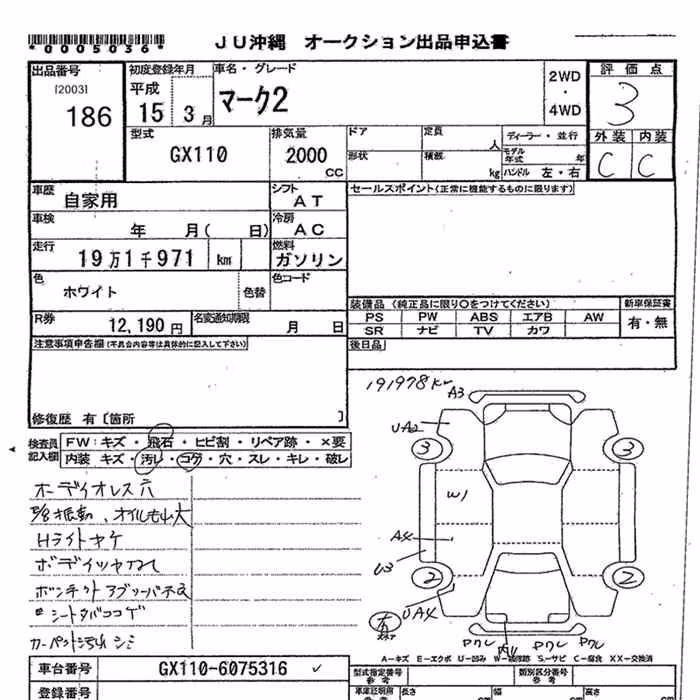 *0005036*
JU沖縄 オークション出品申込書
出品番号
[2003]
186
初度登録年月
平成
15 3月
車名・グレード
マーク2
2WD
・
4WD
評価点
3
外装 内装
C C
型式
GX110
排気量
2000
CC
ドア
定員
人
形状
積載
kg
ディーラー・並行
モデル年式 年
ハンドル 左・右
車歴
自家用
シフト
AT
車検
年 月( 日)
冷房
AC
走行
19万1千971 km
燃料
ガソリン
色
ホワイト
色替
色コード
R券
12,190 円
名変通知期限
月 日
セールスポイント(正常に機能するものに限ります)
装備品 (純正品に限り○をつけてください)
新車保証書
PS PW ABS エアB AW
SR ナビ TV カワ
有・無
後日品
注意事項申告欄(不具合内容等は具体的に記入して下さい)
修復歴 有〔箇所 〕
検査員記入欄
FW:キズ・飛石・ヒビ割・リペア跡・×要
内装 キズ・汚レ・コゲ・穴・スレ・キレ・破レ
オーディオレス穴
Hライトヤケ
カーペット汚れ シミ
191978km
A3
UA2
3
3
W1
A4
U3
2
2
UA4
A-キズ E-エクボ U-凹み W-補修跡 S-サビ C-腐食 XX-交換済
車台番号
GX110-6075316
登録番号
型式指定番号
参考
類別区分番号
参考
車庫証明用
長さ
cm
幅
cm
高さ
cm